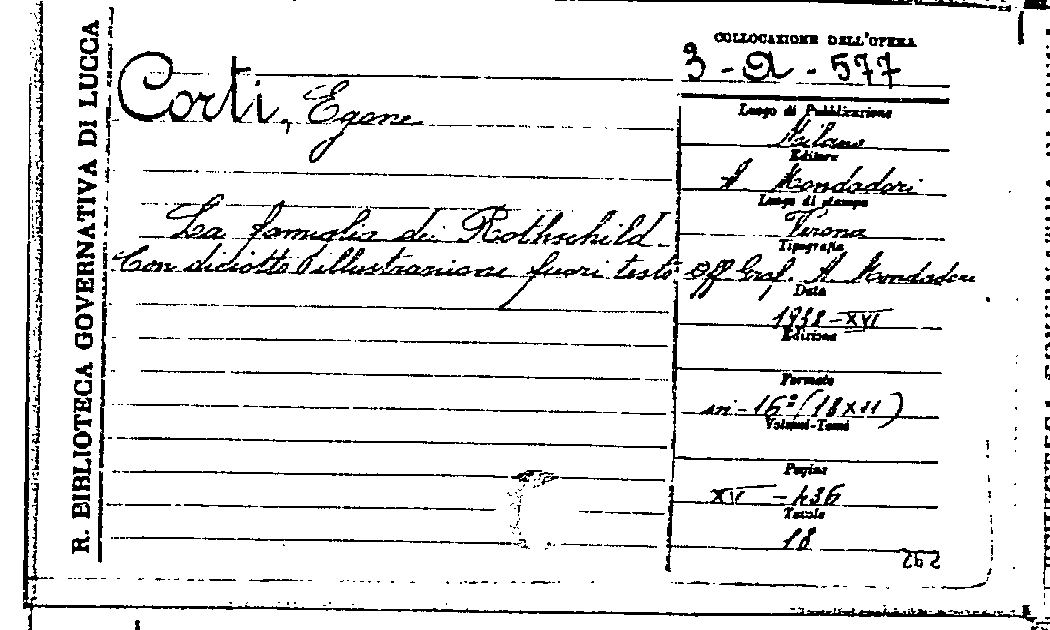 R. BIBLIOTECA GOVERNATIVA DI LUCCA
COLLOCAZIONE DELL'OPERA
3 - A - 577
Corti, Egone
La famiglia dei Rothschild
Con diciotto illustrazioni fuori testo
Luogo di Pubblicazione
Milano
Editore
A Mondadori
Luogo di stampa
Verona
Tipografia
Off Graf. A Mondadori
Data
1938-XVI
Edizione
Formato
in-16º (18x11)
Volumi-Tomi
Pagine
XVI - 436
Tavole
18